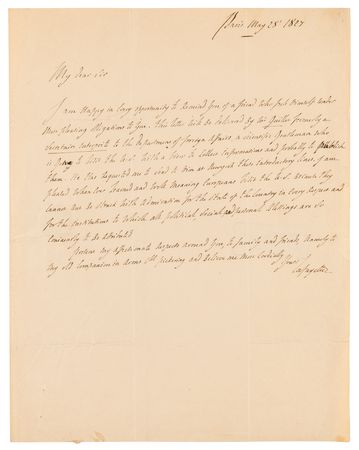 Paris May 28th 1827
My dear Sir
I am Happy in Every opportunity to Remind You of a friend who feels Himself under
Many pleasing obligations to You. This letter will be delivered by Mr formerly a
Secretary interprete to the Department of foreign affairs, a Scientific Gentleman who
is to the U.S. with a View to Collect informations and probably to publish
them. He Has Requested me to Send to Him at Newyork this introductory lines. I am
pleased when low Sensed and well Meaning Europeans Visit the U.S. because they
Cannot but be Struck with admiration for the State of the Country in Every Respect and
for the institutions to Which all political, Social, and personal Blessings are So
to be attributed
Present my affectionate Respects around You, to family and friends, Namely to
My old Companion in arms Cl pickering and Believe me Most Cordially
Yours
Lafayette